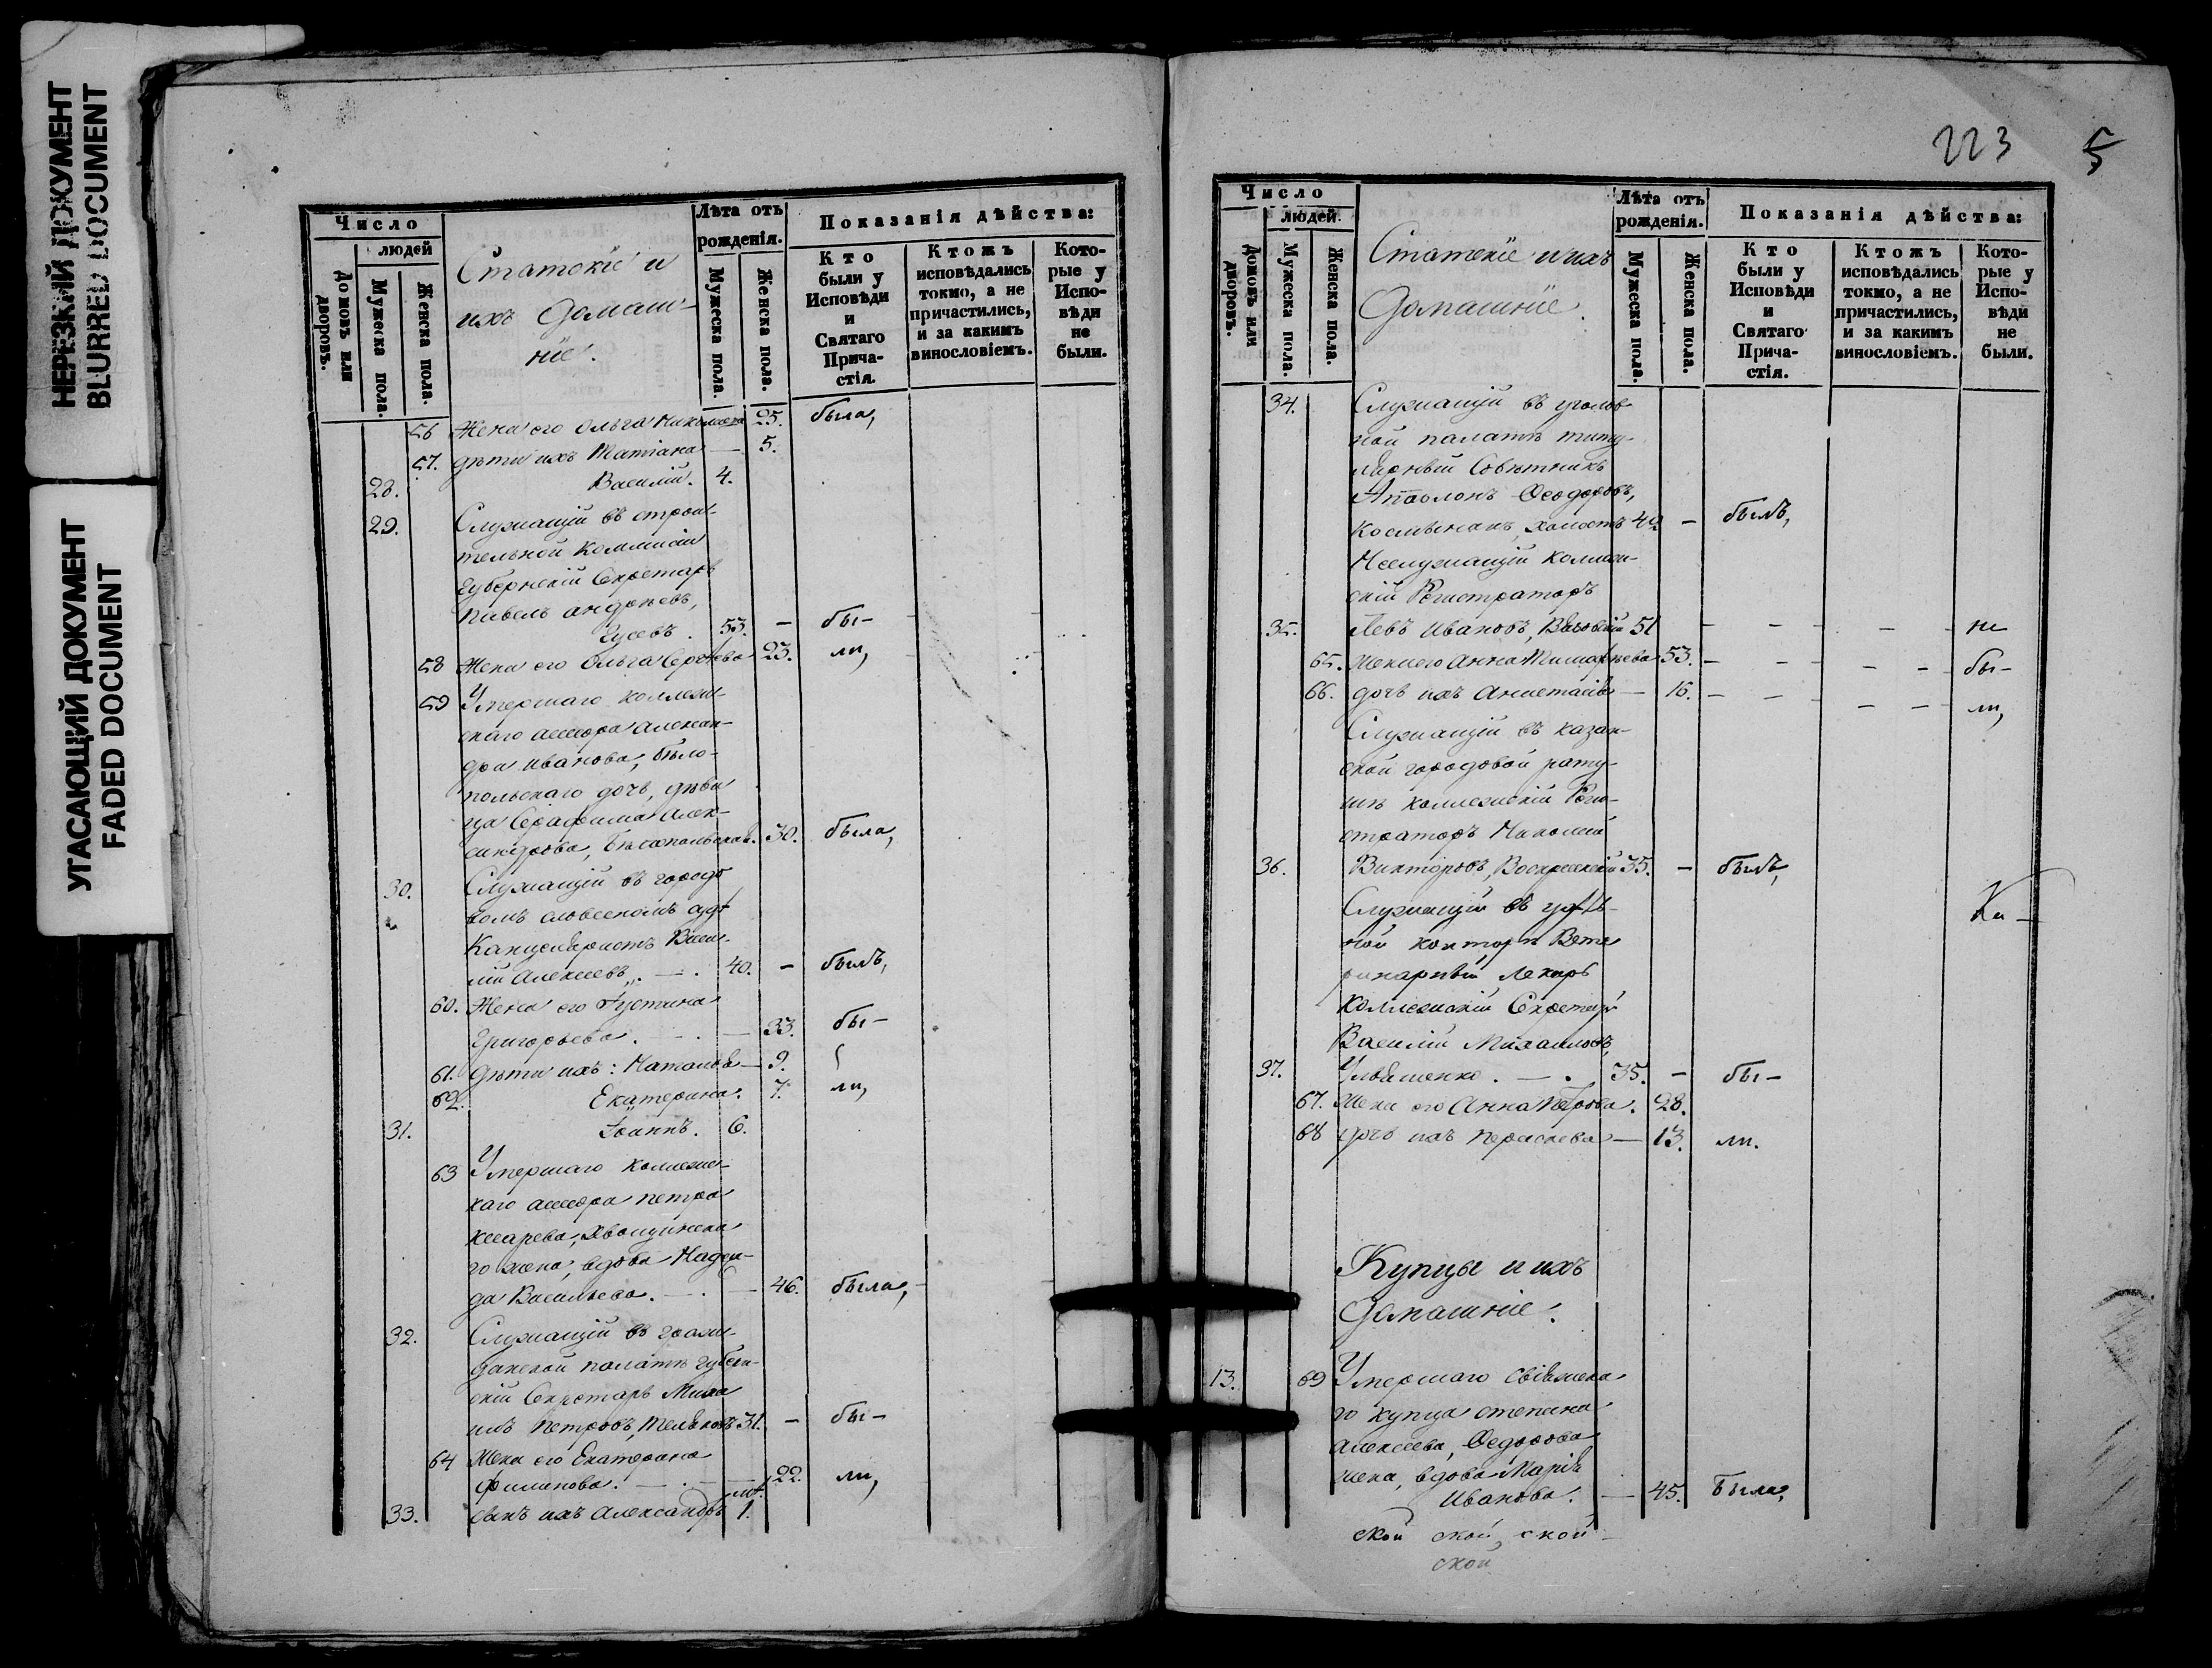 НЕРЕЗКИЙ ДОКУМЕНТ
BLURRED DOCUMENT
УГАСАЮЩИЙ ДОКУМЕНТ
FADED DOCUMENT
Число
людей
Домовъ или дворовъ.
Мужеска пола.
Женска пола.
Статскіе и
ихъ домаш-
ніе.
Лѣта отъ рожденія.
Мужеска пола.
Женска пола.
Показанія дѣйства:
Кто были у Исповѣди и Святаго Причастія.
Ктожъ исповѣдались токмо, а не причастились, и за какимъ винословіемъ.
Которые у Исповѣди не были.
56 Жена его Ольга Николаева 25. была,
57. дѣти ихъ Татіана — 5.
28. Василій. 4.
29. Служащій въ строи-
тельной Коммисіи
Губернскій Секретарь
Павелъ Андреевъ,
Гусевъ. 53. – бы-
58 Жена его Ольга Сергѣева 23. ли,
59 Умершаго коллеж-
скаго ассесора Алексан-
дра Иванова, Бѣло-
польскаго дочь, дѣви
ца Серафима Алек-
сандрова, Бѣлопольская. 30. была,
30. Служащій въ город
комъ словесномъ судѣ
Канцеляристъ Васи-
лій Алексеевъ. — 40. – былъ,
60. Жена его Іустина
Григорьева. — 33. бы-
61. дѣти ихъ: Наталія — 9.
62. Екатерина. 7. ли,
31. Іоаннъ. 6.
63 Умершаго Коллежс-
каго ассесора Петра
го жена, вдова Надеж-
да Васильева. — 46. была,
32. Служащій въ граж-
данской палатѣ губерн-
скій Секретарь Миха
илъ Петровъ, 31. – бы-
64 Жена его Екатерина
Филипова. — 22. ли,
33. сынъ ихъ Александръ 1.
223 5
Число
людей.
Домовъ или дворовъ.
Мужеска пола.
Женска пола.
Статскіе и ихъ
Домашніе.
Лѣта отъ рожденія.
Мужеска пола.
Женска пола.
Показанія дѣйства:
Кто были у Исповѣди и Святаго Причастія.
Ктожъ исповѣдались токмо, а не причастились, и за какимъ винословіемъ.
Которые у Исповѣди не были.
34. Служащій въ уголов
ной палатѣ титу-
лярный Совѣтникъ
Апполонъ Ѳеодоровъ,
холостъ 40 – былъ,
Неслужащій коллеж-
скій Регистраторъ
35. Левъ Ивановъ, 51 – – – – не
65. жена его Анна Тимофѣева 53. – – – – бы-
66. дочь ихъ Анастасія — 16. – – – – ли,
Служащій въ казан-
ской городовой рату-
шѣ коллежскій Реги-
страторъ Николай
36. Викторовъ, Воскресенскій 35. – былъ,
Служащій въ
ной конторѣ Вете
ринарный Лекарь
Коллежскій Секретарь
Василій Михаиловъ,
37. — 35. – бы-
67. Жена его Анна Петрова. 28.
68 дочь ихъ — 13. ли.
Купцы и ихъ
Домашніе.
13. 69 Умершаго Свіяжска
го купца Степана
Алексеева, Ѳедорова
жена, вдова Марія
Иванова. — 45. Была,
ской ской, ской
ской